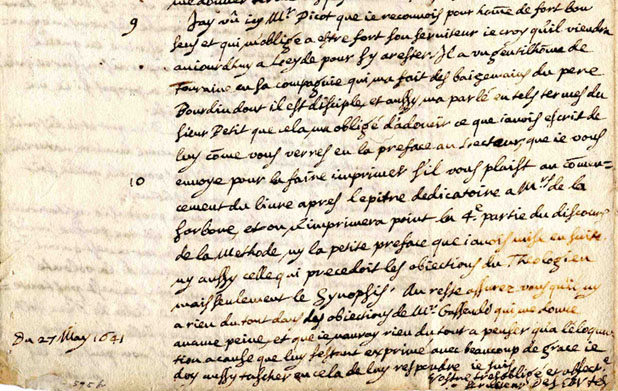 9 Jay vû icy Mr Picot que ie reconnois pour homme de fort bon
sens et qui m'oblige a estre fort son serviteur ie croy quil viendra
aujourdhuy a Leyde pour sy arester. Il a vn gentilhome de
Touraine en sa compagnie qui ma fait des baizemains du pere
Bourdin dont il est disciple, et aussy ma parlé en tels termes du
sieur Petit que cela ma obligé d'adoucir ce que iavois escrit de
luy cõme vous verres en la preface au Lecteur, que ie vous
10 envoye pour la faire imprimer s'il vous plaist au comen-
cement du livre apres l'epitre dedicatoire a Mrs de la
Sorbone, et on n'imprimera point la 4e partie du discours
de la Methode, ny la petite preface que iavois mise en suite,
ny aussy celle qui precedoit les obiections du Theologien
mais seulement le Synopsis. Au reste assurez vous quil ny
a rien du tout dans les obiections de Mr Gassendi qui me donne
aucune peine, et que ie nauray rien du tout a penser qua l'eloquu-
tion a cause que luy sestant exprimé avec beaucoup de grace ie
doy aussy tascher en cela de luy respondre ie suis
Du 27 May 1641
Vostre tres obligé et affectne
serviteur Descartes